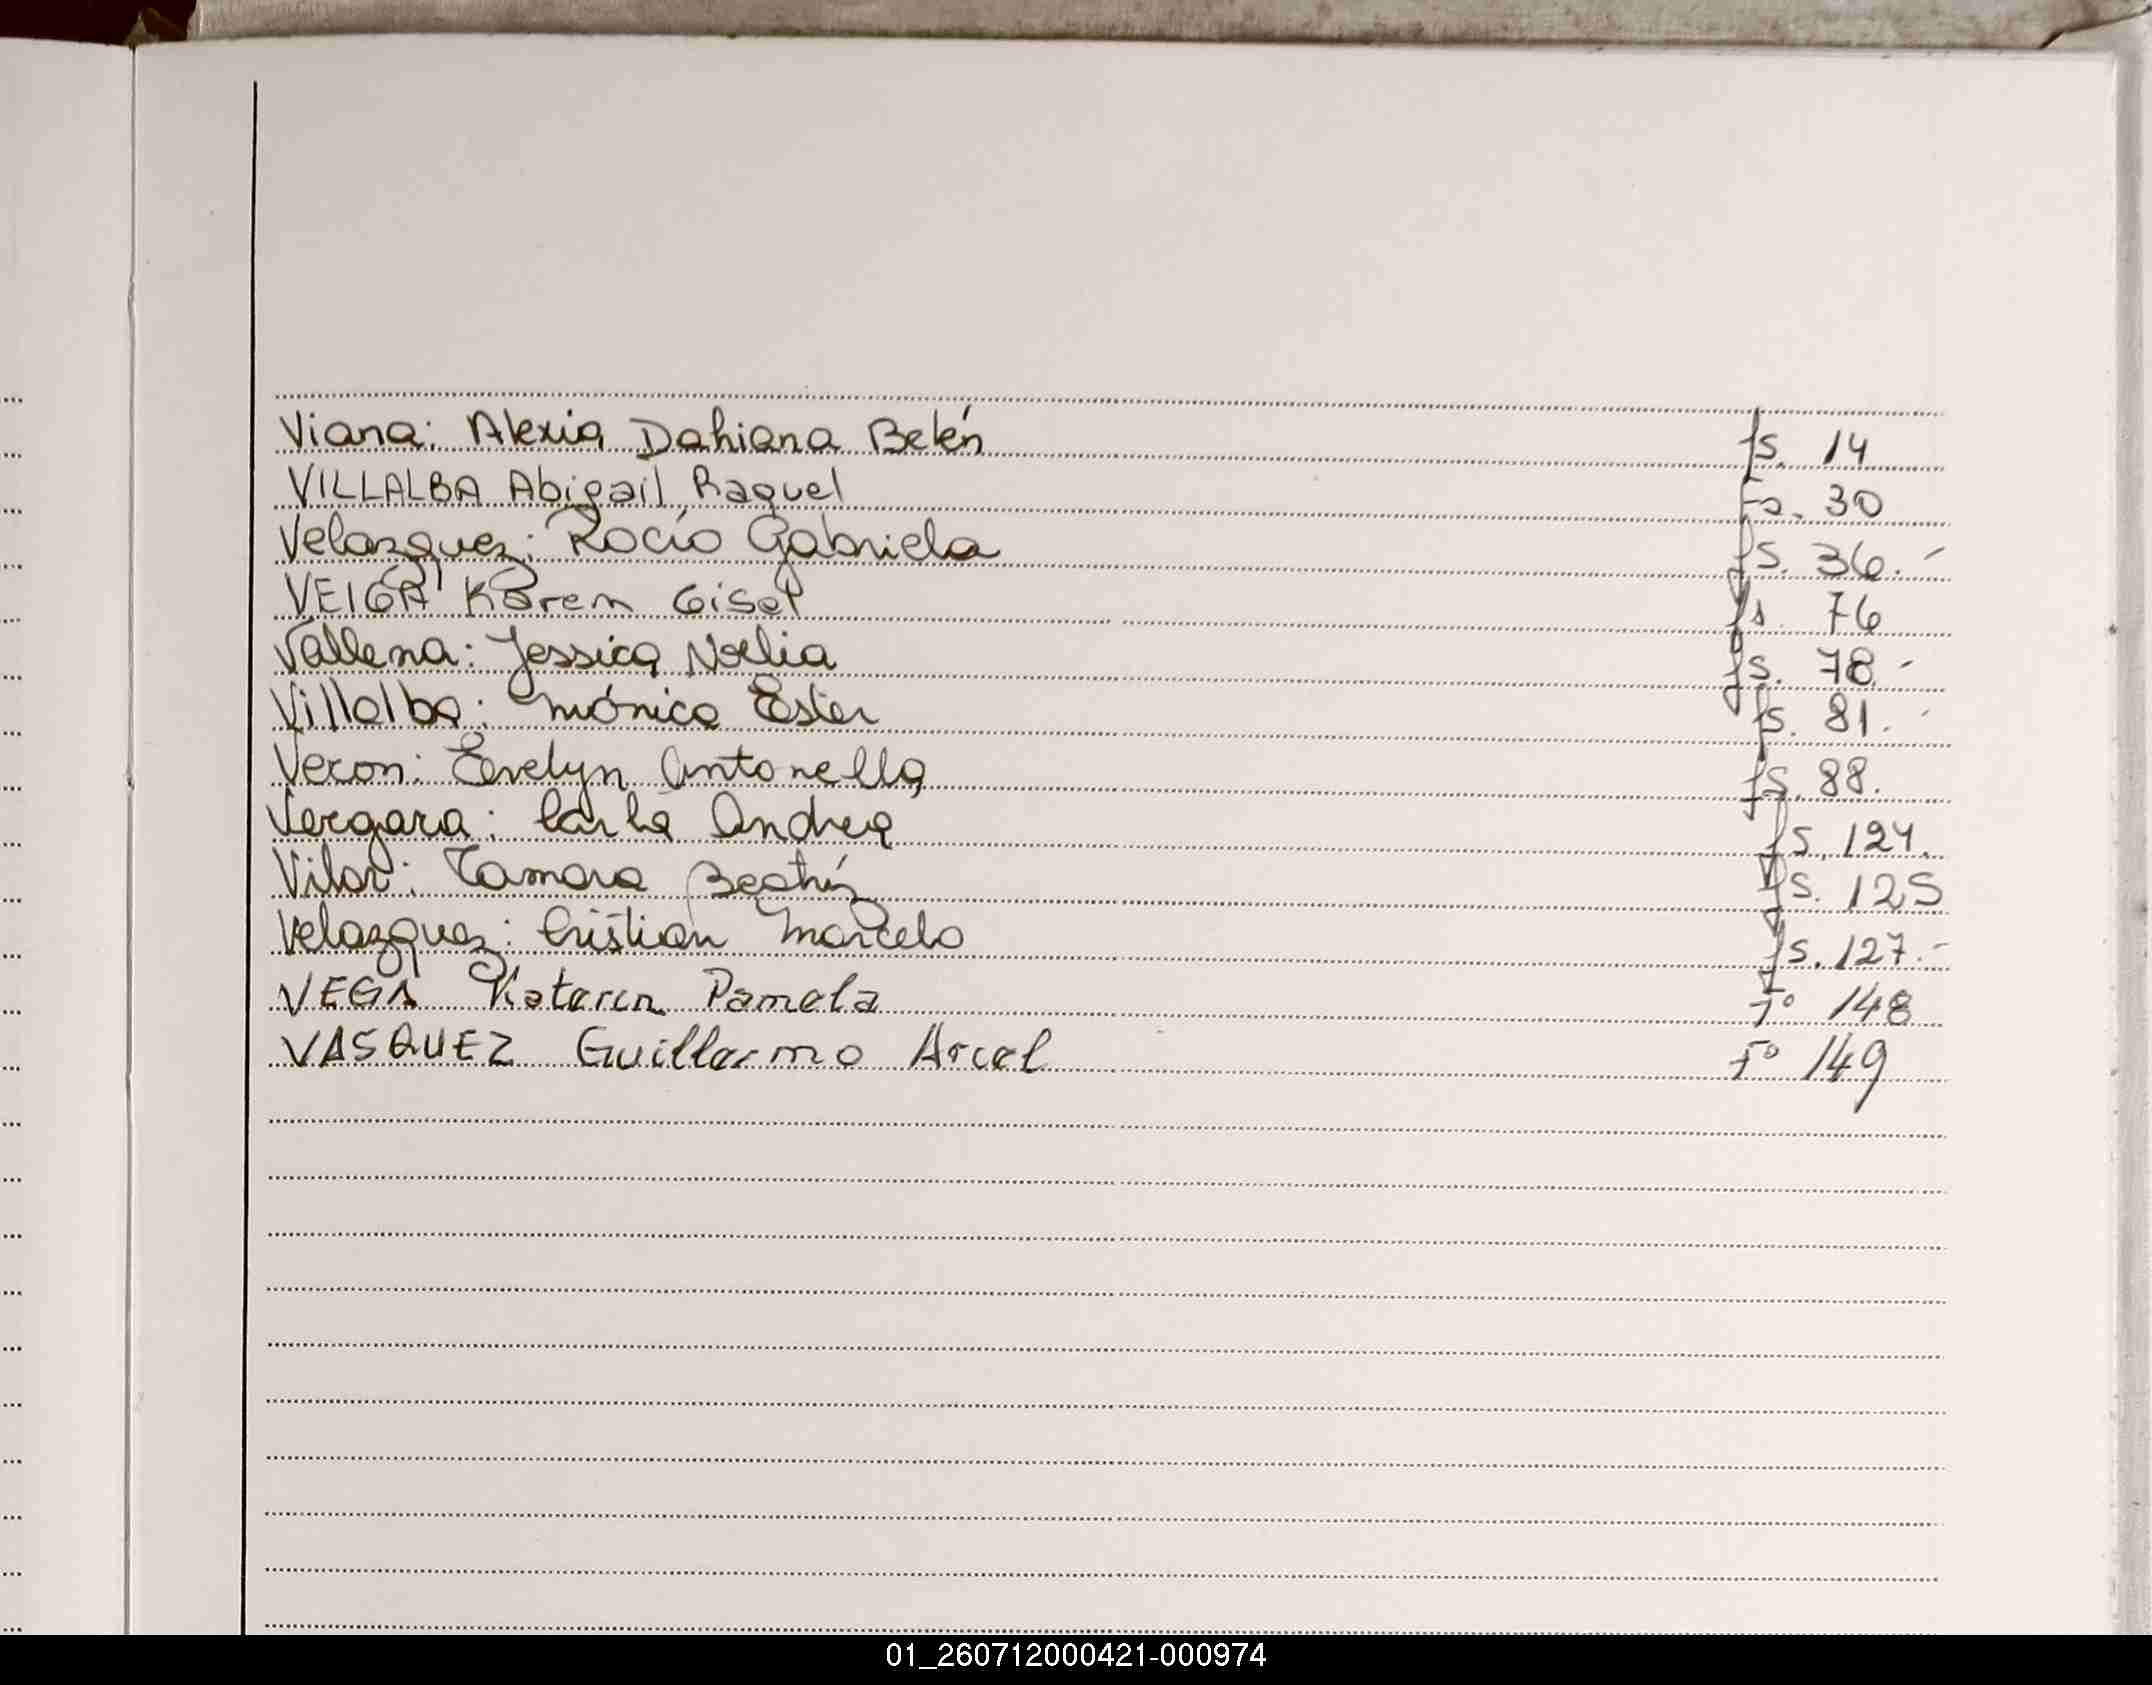 Viana: Alexia Dahiana Belén fs. 14
VILLALBA Abigail Raquel Fs. 30
Velazquez: Rocío Gabriela fs. 36.-
VEIGA Karem Gisel fs 76
Vallena: Jessica Noelia fs. 78.-
Villalba: Mónica Ester fs. 81.-
Veron: Evelyn Antonella fs. 88.
Vergara: Carla Andrea fs. 124.
Vilar: Tamara Beatríz fs. 125
Velazquez: Cristian Marcelo fs. 127.-
VEGA Katerin Pamela Fº 148
VASQUEZ Guillermo Arcel Fº 149
01_260712000421-000974